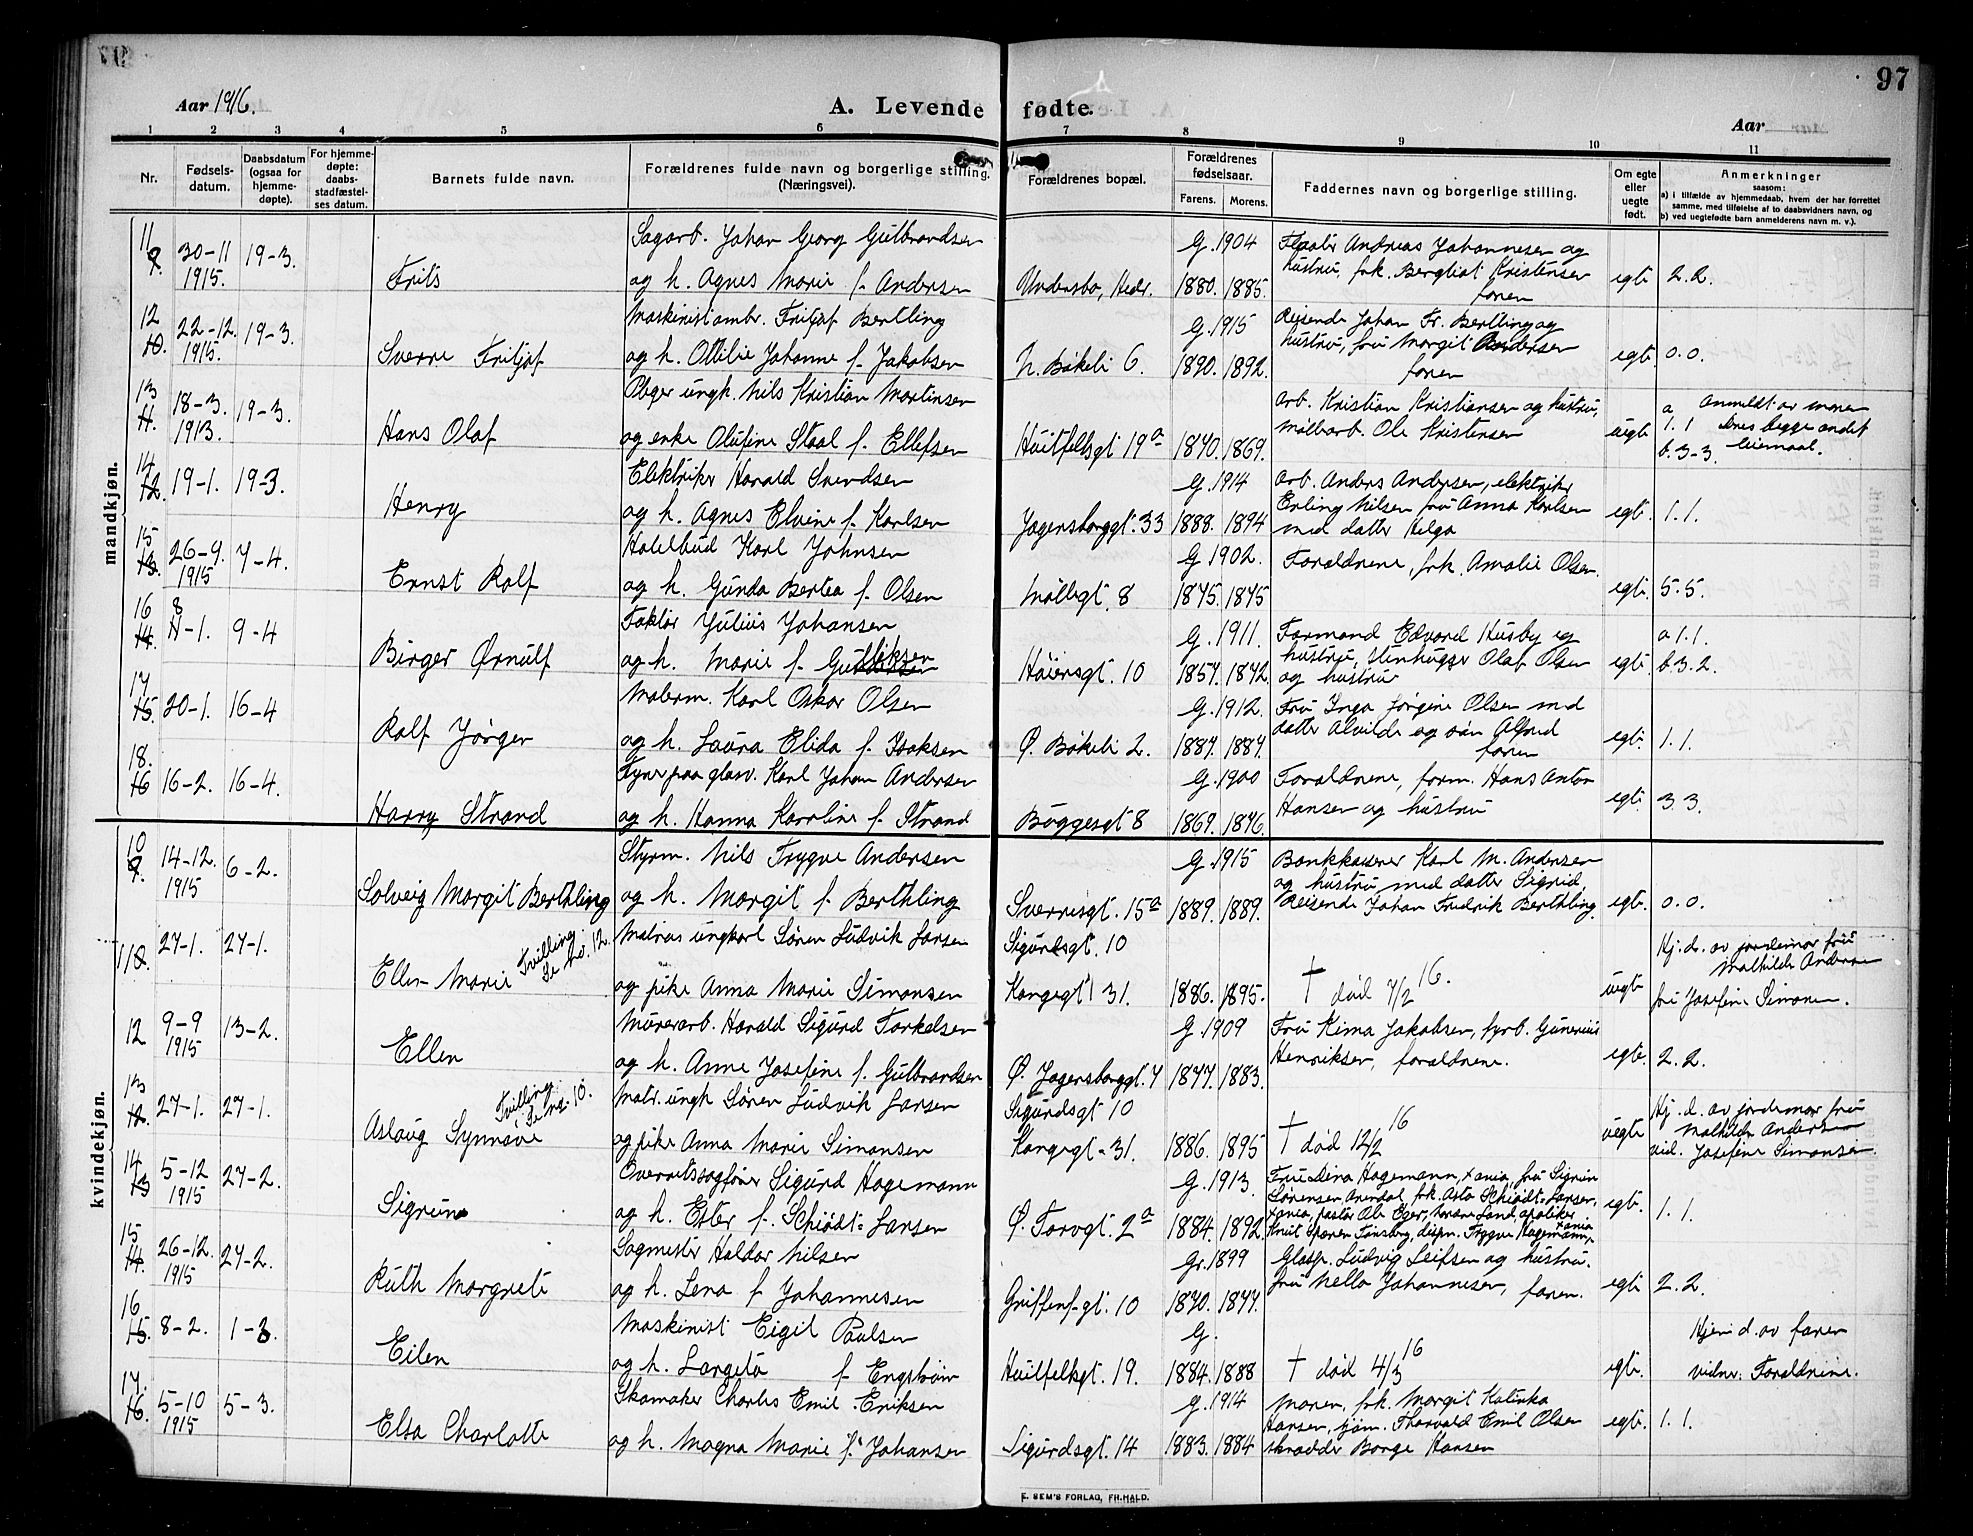 97
Aar 1916.
A. Levende fødte.
Aar
1 2 3 4 5 6 7 8 9 10 11
Nr.
Fødsels-datum.
Daabsdatum (ogsaa for hjemme-døpte).
For hjemme-døpte: daabs-stadfæstel-ses datum.
Barnets fulde navn.
Forældrenes fulde navn og borgerlige stilling. (Næringsvei).
Forældrenes bopæl.
Forældrenes fødselsaar.
Farens. Morens.
Faddernes navn og borgerlige stilling.
Om egte eller uegte født.
Anmerkninger
saasom:
a) i tilfælde av hjemmedaab, hvem der har forrettet samme, med tilføielse af to daabsvidners navn, og
b) ved uegtefødte barn anmelderens navn m. v.).
mandkjøn.
11 9. 30-11 1915. 19-3. Frits
Sagarb. Johan Georg Gulbrandsen
og h. Agnes Marie f. Andersen
Undersbo, Hedr. G. 1904 1880. 1885.
Andreas Johannesen og
hustru, frk. Bergliot Kristensen
faren
egte 2.2.
12 10. 22-12. 1915. 19-3. Sverre Fritjof
Maskinistambr. Fritjof Bertling
og h. Ottilie Johanne f. Jakobsen
N. Bökeli 6. G. 1915 1890. 1892.
Reisende Johan Fr. Bertling og
hustru, fru Margit Andersen
faren
egte 0.0.
13 11. 18-3. 1913. 19-3. Hans Olaf
Pleger ungk. Nils Kristian Martinsen
og enke Olufine Staal f. Ellefsen
Huitfeltsgt 19a 1870. 1869.
Arb. Kristian Kristiansen og hustru,
Målbarb. Ole Kristensen
uegte a 1.1 b. 3-3.
Anmeldt av moren
Dres begges andet
leiermaal.
14 12. 19-1. 19-3. Henry
Elektriker Harald Svendsen
og h. Agnes Elvine f. Karlsen
Jegersborggt. 33 G. 1914 1888. 1894
Arb. Anders Andersen, elektriker
Erling Nilsen fru Anna Karlsen
med datter Helga
egte. 1.1.
15 13. 26-9. 1915 7-4. Ernst Rolf
Hotelbud Karl Johnsen
og h. Gunda Bertea f. Olsen
Møllegt. 8 G. 1902. 1875. 1875
Foraldrene, frk. Amalie Olsen.
egte. 5.5.
16 14. 8 11-1. 9-4 Birger Ørnulf
Faktor Julius Johansen
og h. Marie f.
Høiersgt. 10 G. 1911. 1857. 1872
Formand Edvard Husby og
hustru, stenhugger Olaf Olsen
og hustru
egte. a 1.1. b. 3.2.
17 15. 20-1. 16-4 Rolf Jørger
Malerm. Karl Oskar Olsen
og h. Laura Elida f. Isaksen
Ø. Bökeli 2. G. 1912. 1887. 1887.
Fru Inga Jørgine Olsen med
datter Alvilde og søn Alfred
faren
egte. 1.1.
18. 16 16-2. 16-4. Harry Strand
Fyrer paa glasv. Karl Johan Andersen
og h. Hanna Karoline f. Strand
Buggesgt 8 G. 1900 1869. 1876.
Foraldrene, form. Hans Anton
Hansen og hustru
egte 3.3.
kvindekjøn.
10 9. 14-12. 1915 6-2. Solveig Margit Berthling
Styrm. Nils Trygve Andersen
og h. Margit f. Berthling
Sverresgt. 15a G. 1915 1889. 1889.
Bankkaserer Karl M. Andersen
og hustru med datter Sigrid,
Reisende Johan Fredrik Berthling
egte. 0.0.
11 27-1. 27-1. Ellen Marie Tvilling. Se No. 12.
Matros ungkarl Søren Ludvik Larsen
og pike Anna Marie Simonsen
Sigurdsgt. 10
Kongegt 31. 1886. 1895.
† død 7/2 16.
uegte
Hj. d. av jordemor fru
Mathilde Andersen
fru Josefine Simonsen.
12 9-9 1915 13-2. Ellen
Murerarb. Harald Sigurd Torkelsen
og h. Anne Josefine f. Gulbrandsen
Ø. Jegersborggt. 7 G. 1909 1877. 1883.
Fru Kima Jakobsen, fyrb. Gunerius
Henriksen, foraldrene.
egte 2.2.
13 12. 27-1. 27-1. Aslaug Synnøve Tvilling. Se no. 10.
Matr. ungk Søren Ludvik Larsen
og pike Anna Marie Simonsen
Sigurdsgt 10
Kongegt-31. 1886. 1895
† død 12/2 16
uegte
Hj. d. av jordemor fru
Mathilde Andersen
vid. Josefine Simonsen.
14 13 5-12 1915 27-2. Sigrun
Overretssagfører Sigurd Hagemann
og h. Ester f. Schiødt-Larsen
Ø. Torvgt. 2a G. 1913. 1884. 1892.
Fru Dina Hagemann, Xania, fru Sigrun
Sørensen Arendal, frk. Asta Schiødt-Larsen,
Xania, pastor Ole Eger, apoteker
Knut Sparen Tønsberg, disp. Trygve Hagemann, Xania
egte. 1.1.
15 14. 26-12. 1915 27-2. Ruth Margrete
Sagmester Haldor Nilsen
og h. Lena f. Johannesen
Griffenf-gt. 10 Gr. 1899 1870. 1877.
Glasp. Ludvig Leifsen og hustru.
fru Nella Johannesen, faren.
egte 2.2.
16 15. 8-2. 1-3. Eilen
Maskinist Eigil Paulsen
og h. f. Engstrøm
Huitfeltsgt. 19. G. 1884. 1888
† død 4/3 16
egte.
Hjem d. av faren
vidner: Foraldrene.
17. 16. 5-10 1915 5-3. Elsa Charlotte
Skomaker Charles Emil Eriksen
og h. Magna Marie f. Johansen
Sigurdsgt. 14 G. 1914 1883. 1884
Moren, frk. Margit Katinka
Hansen, sjøm. Thorvald Emil Olsen
skrædder Borge Hansen
egte. 1.1.
E. SEM'S FORLAG, FR.HALD.